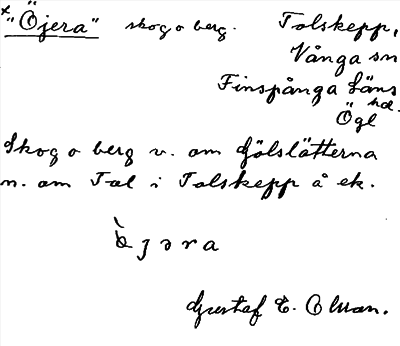 x "Öjera" skog o berg. Talskepp,
Vånga sn
Finspånga Läns
hd.
Ögl
Skog o berg v. om Gölslätterna
n. om Tal i Talskepp å ek.
jəra
Gustaf E. Olsson.